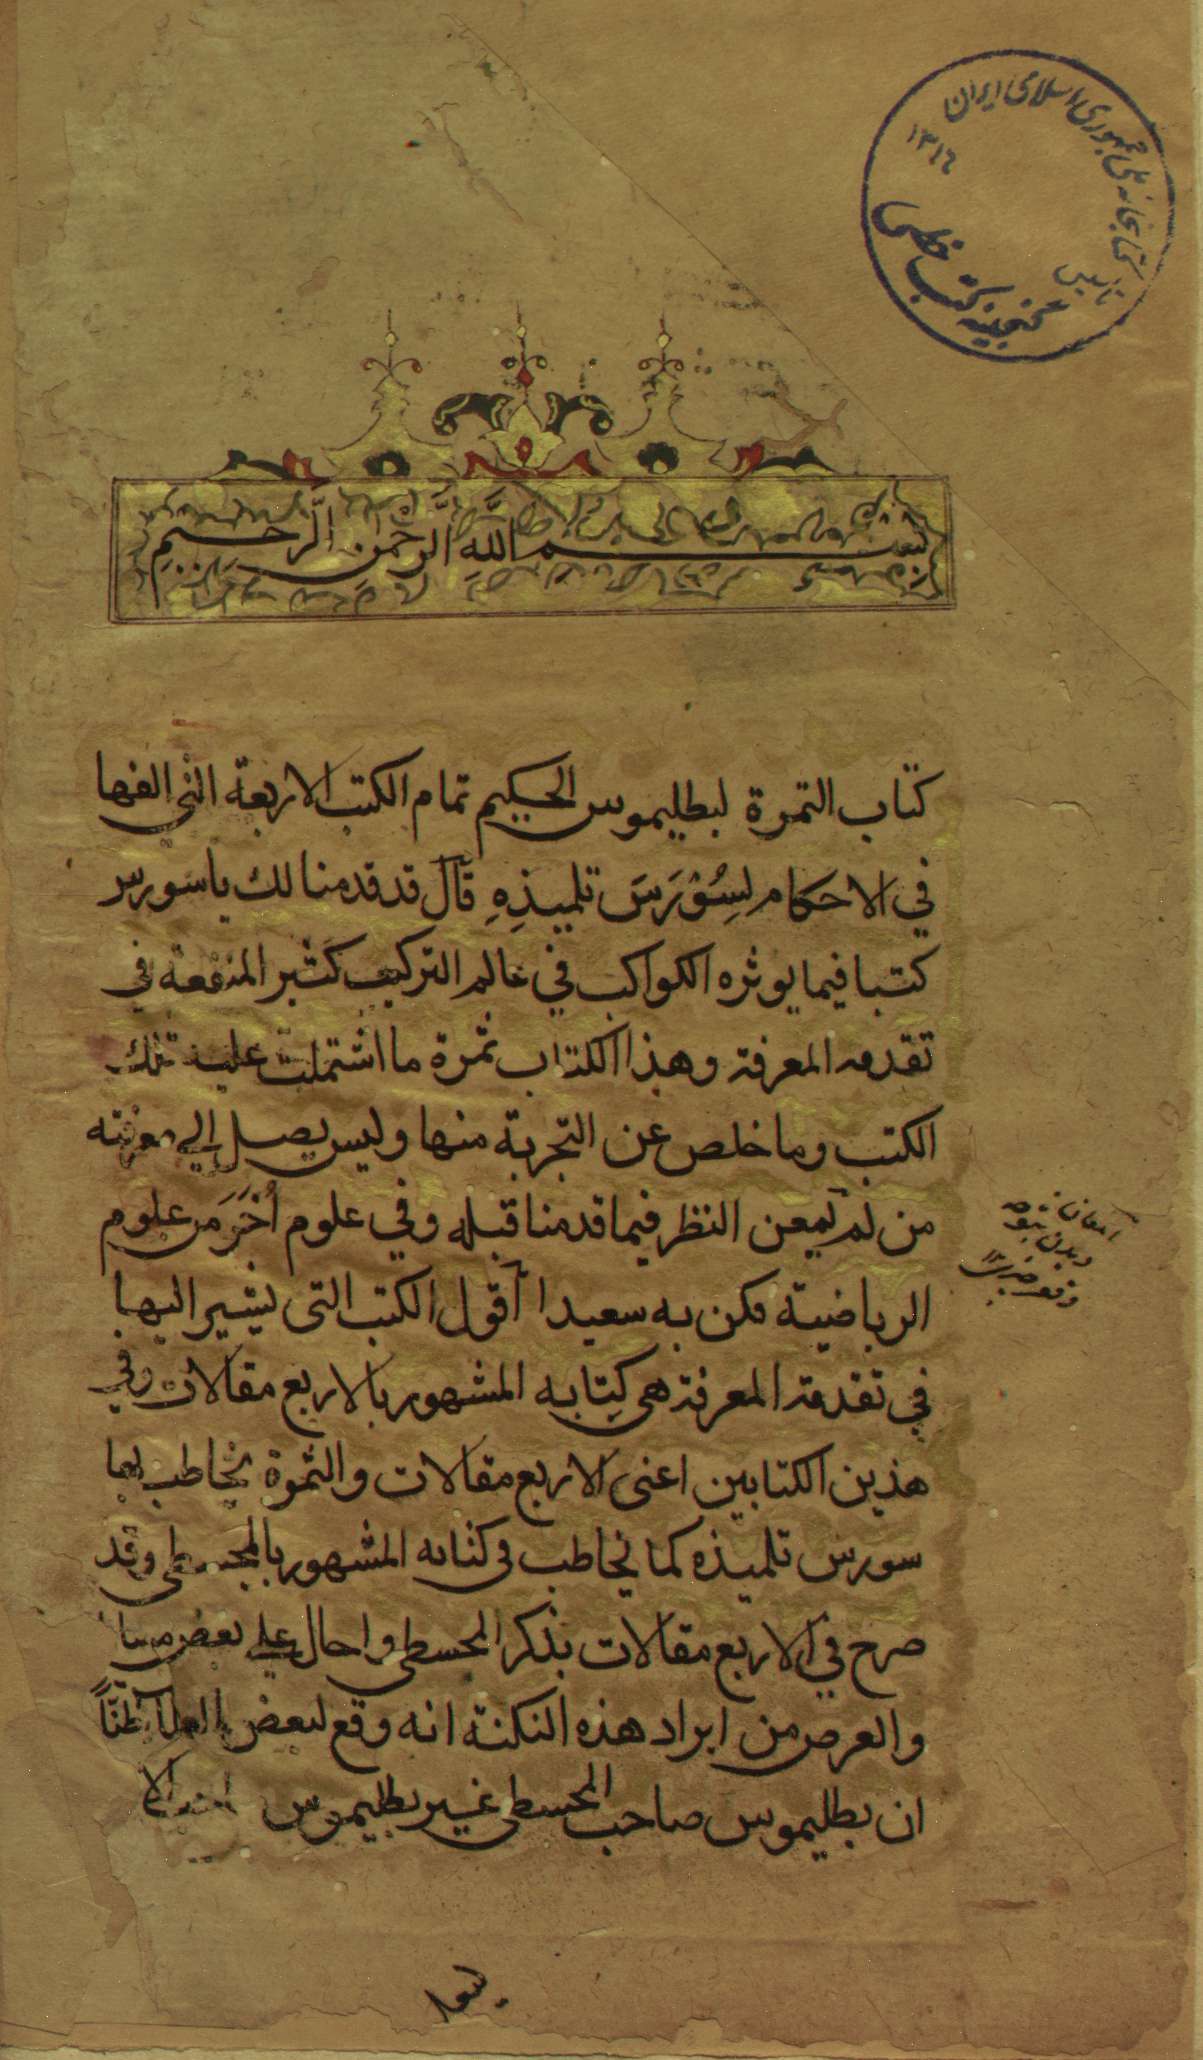 كتابخانه ملى جمهورى اسلامى ايران
١٣١٦
گنجينه كتب خطى
بِسْمِ اللَّهِ الرَّحْمنِ الرَّحِيمِ
كتاب الثمرة لبطليموس الحكيم تمام الكتب الاربعة التى الفها
في الاحكام لِسُوْرَسَ تلميذِهِ قال قد قدمنا لك يا سورس
كتبا فيما يوثره الكواكب في عالم التركيب كثير المنفعة في
تقدمه المعرفة وهذا الكتاب ثمرة ما اشتملت عليه تلك
الكتب وما خلص عن التجربة منها وليس يصل الي معرفته
من لم يمعن النظر فيما قدمنا قبله وفي علوم أُخَرَ من علوم
الرياضية فكن به سعيدا أقول الكتب التى يشير اليها
في تقدمة المعرفة هى كتابه المشهور بالاربع مقالات وفي
هذين الكتابين اعنى الاربع مقالات والثمرة يخاطب بهما
سورس تلميذه كما يخاطب فى كتابه المشهور بالمجسطى وقد
صرح في الاربع مقالات بذكر المجسطى واحال على بعض
والغرض من ايراد هذه النكتة انه وقع لبعض ظنّاً
ان بطليموس صاحب المجسطى غير بطليموس